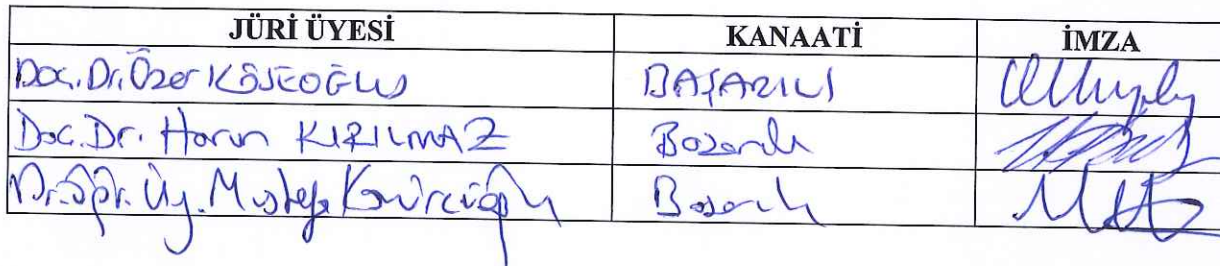 JÜRİ ÜYESİ KANAATİ İMZA
Doç. Dr. Özer KÖSEOĞLU BAŞARILI
Doç. Dr. Harun KIRILMAZ Başarılı
Dr. Öğr. Üy. Mustafa Kömürcüoğlu Başarılı